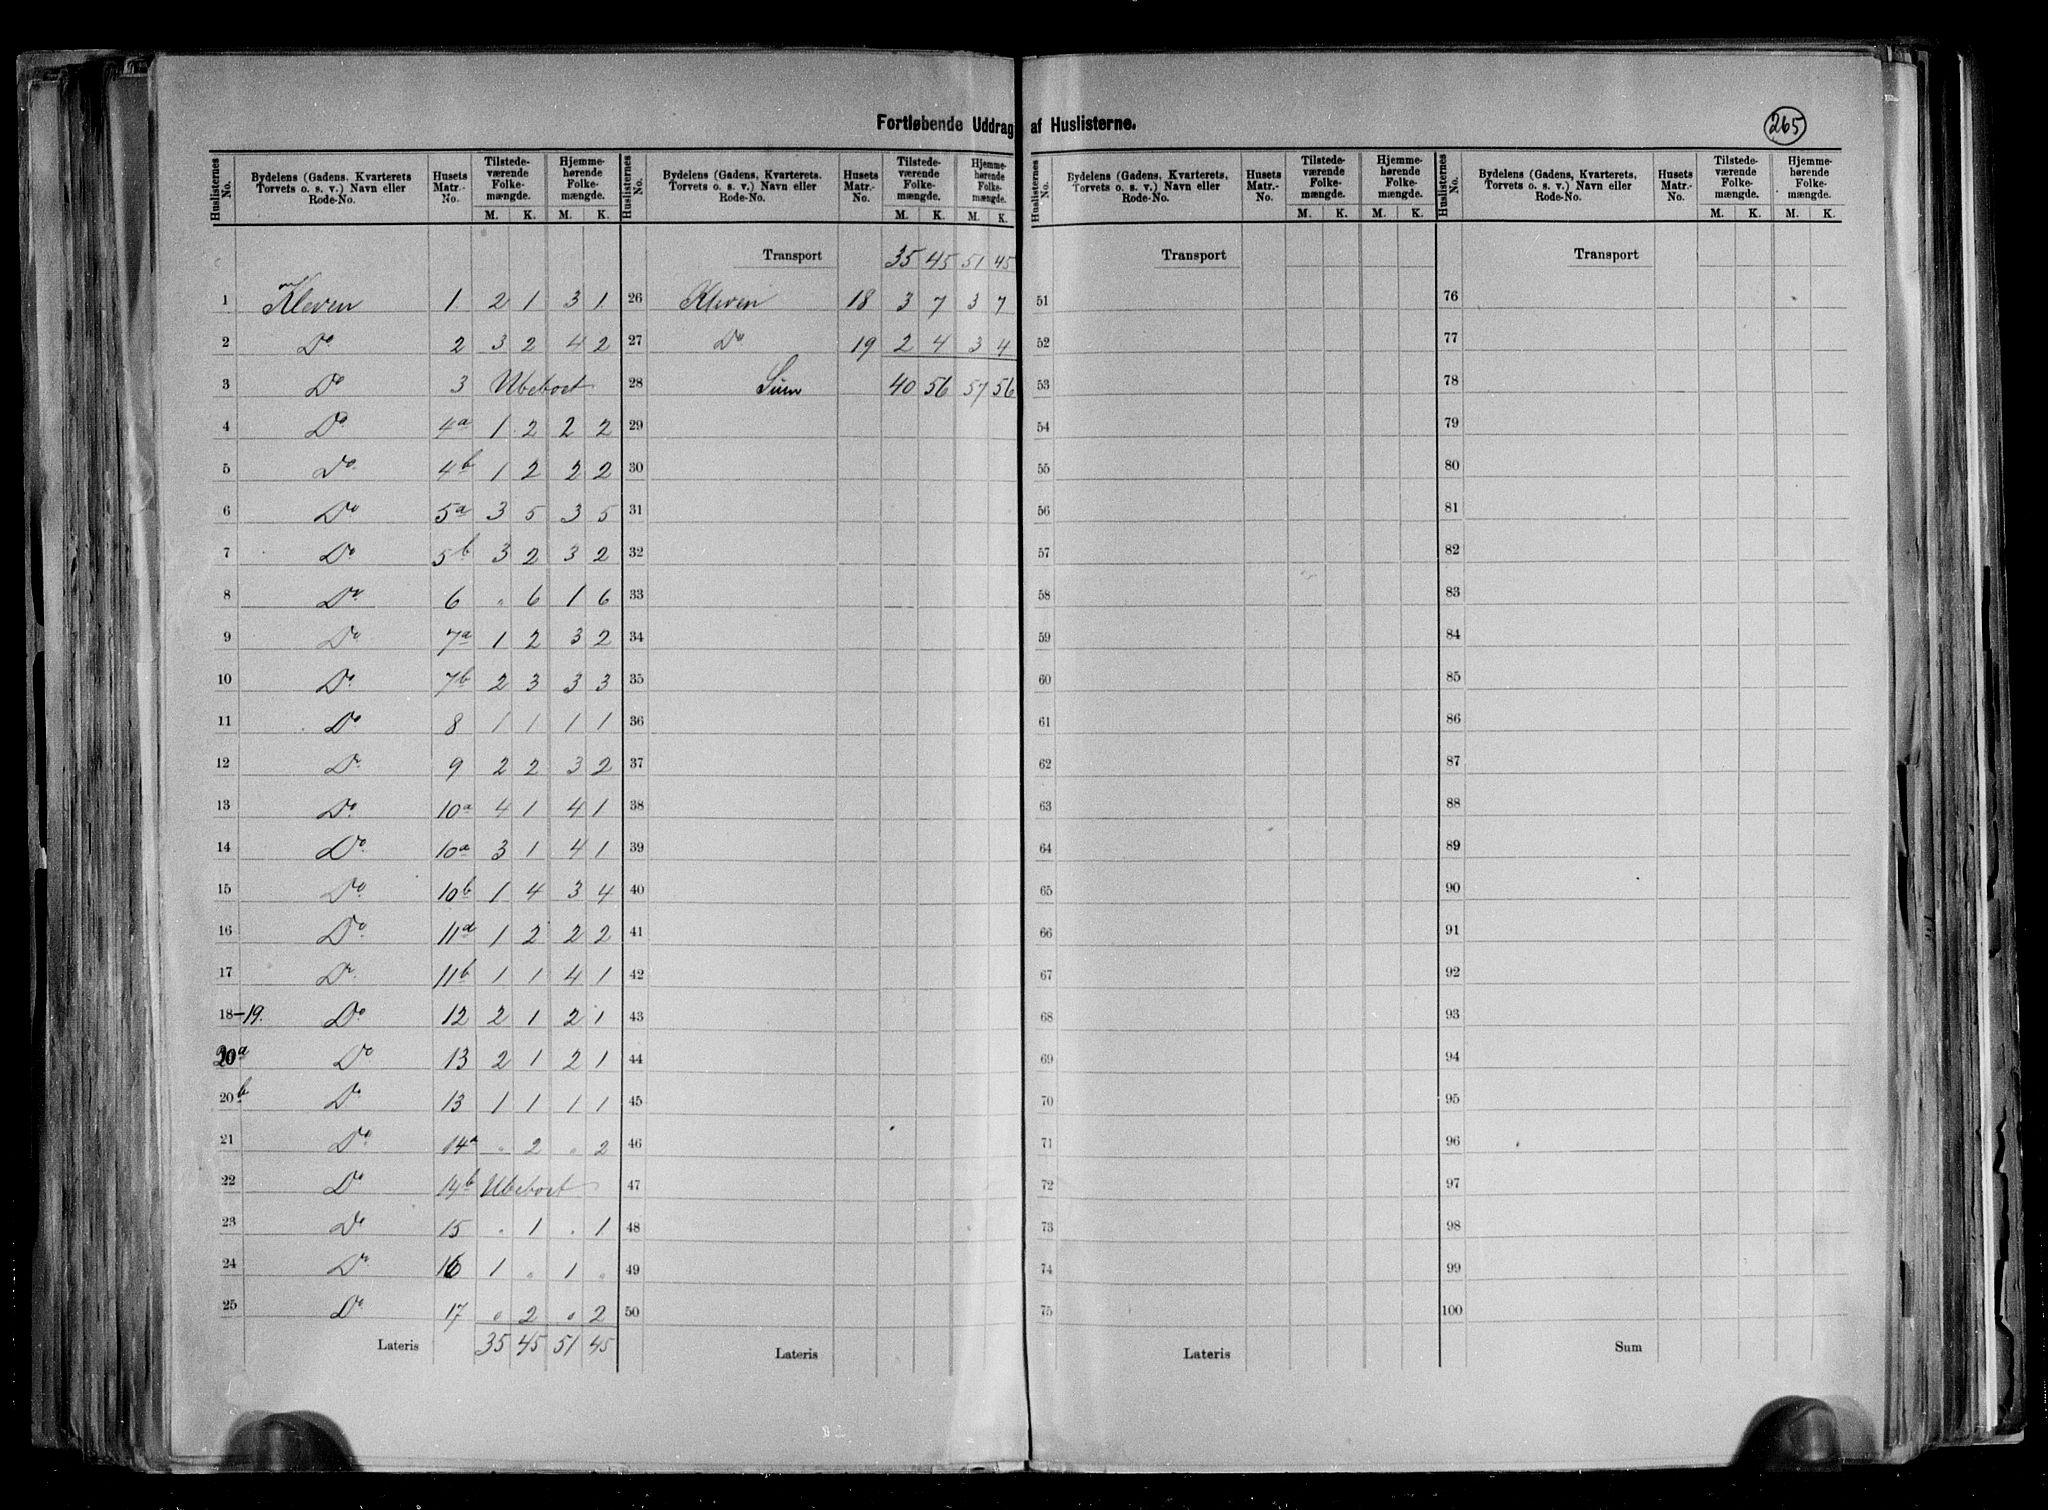 Fortløbende Uddrag af Huslisterne.
265
Huslisternes No. | Bydelens (Gadens, Kvarterets, Torvets o. s. v.) Navn eller Rode-No. | Husets Matr.-No. | Tilstede-værende Folke-mængde. M. K. | Hjemme-hørende Folke-mængde. M. K.
1 Kleven 1 2 1 3 1
2 Do 2 3 2 4 2
3 Do 3 Ubeboet
4 Do 4a 1 2 2 2
5 Do 4b 1 2 2 2
6 Do 5a 3 5 3 5
7 Do 5b 3 2 3 2
8 Do 6 " 6 1 6
9 Do 7a 1 2 3 2
10 Do 7b 2 3 3 3
11 Do 8 1 1 1 1
12 Do 9 2 2 3 2
13 Do 10a 4 1 4 1
14 Do 10a 3 1 4 1
15 Do 10b 1 4 3 4
16 Do 11a 1 2 2 2
17 Do 11b 1 1 4 1
18-19. Do 12 2 1 2 1
20a Do 13 2 1 2 1
20b Do 13 1 1 1 1
21 Do 14a " 2 " 2
22 Do 14b Ubeboet
23 Do 15 " 1 " 1
24 Do 16 1 " 1 "
25 Do 17 " 2 " 2
Lateris 35 45 51 45
Huslisternes No. | Bydelens (Gadens, Kvarterets, Torvets o. s. v.) Navn eller Rode-No. | Husets Matr.-No. | Tilstede-værende Folke-mængde. M. K. | Hjemme-hørende Folke-mængde. M. K.
Transport 35 45 51 45
26 Kleven 18 3 7 3 7
27 Do 19 2 4 3 4
28 Sum 40 56 57 56
29
30
31
32
33
34
35
36
37
38
39
40
41
42
43
44
45
46
47
48
49
50
Lateris
Huslisternes No. | Bydelens (Gadens, Kvarterets, Torvets o. s. v.) Navn eller Rode-No. | Husets Matr.-No. | Tilstede-værende Folke-mængde. M. K. | Hjemme-hørende Folke-mængde. M. K.
Transport
51
52
53
54
55
56
57
58
59
60
61
62
63
64
65
66
67
68
69
70
71
72
73
74
75
Lateris
Huslisternes No. | Bydelens (Gadens, Kvarterets, Torvets o. s. v.) Navn eller Rode-No. | Husets Matr.-No. | Tilstede-værende Folke-mængde. M. K. | Hjemme-hørende Folke-mængde. M. K.
Transport
76
77
78
79
80
81
82
83
84
85
86
87
88
89
90
91
92
93
94
95
96
97
98
99
100
Sum